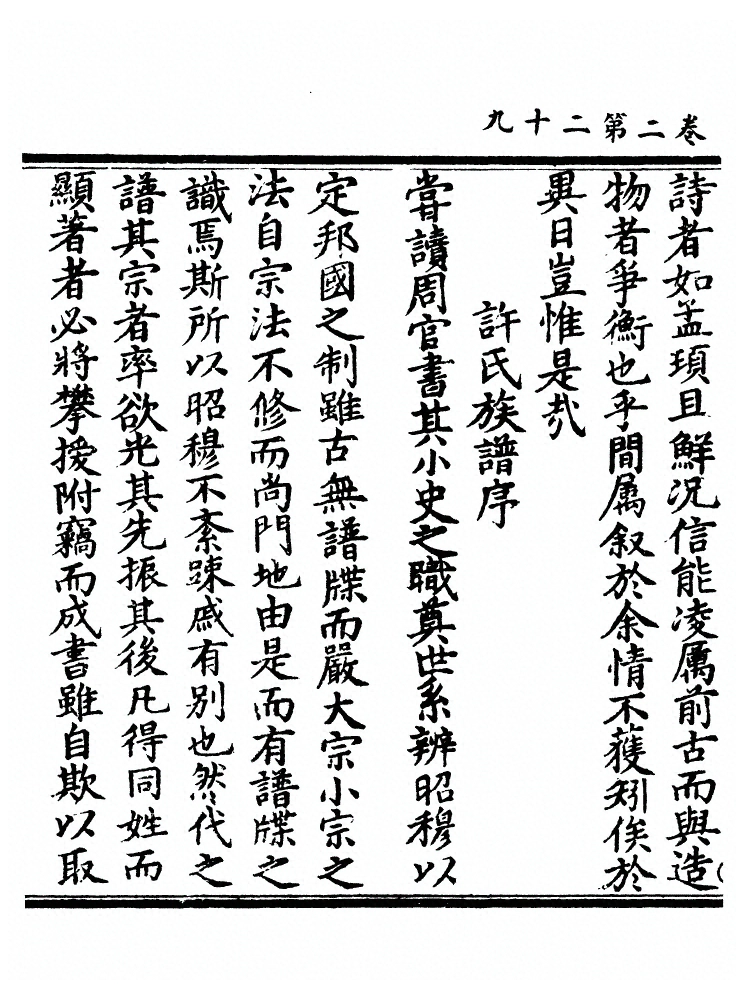 卷二第二十九
詩者如孟頊且鮮況信能凌厲前古而與造
物者爭衡也乎間屬叙於余情不獲矧俟於
異日豈惟是哉
許氏族譜序
嘗讀周官書其小史之職奠世系辨昭穆以
定邦國之制雖古無譜牒而嚴大宗小宗之
法自宗法不修而尚門地由是而有譜牒之
識焉斯所以昭穆不紊踈戚有別也然代之
譜其宗者率欲光其先振其後凡得同姓而
顯著者必將攀援附竊而成書雖自欺以取